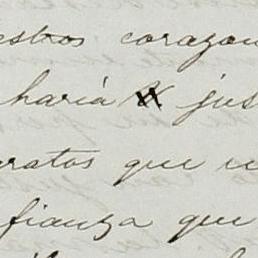 estros corazon
haria jus
ratos que
fianza que